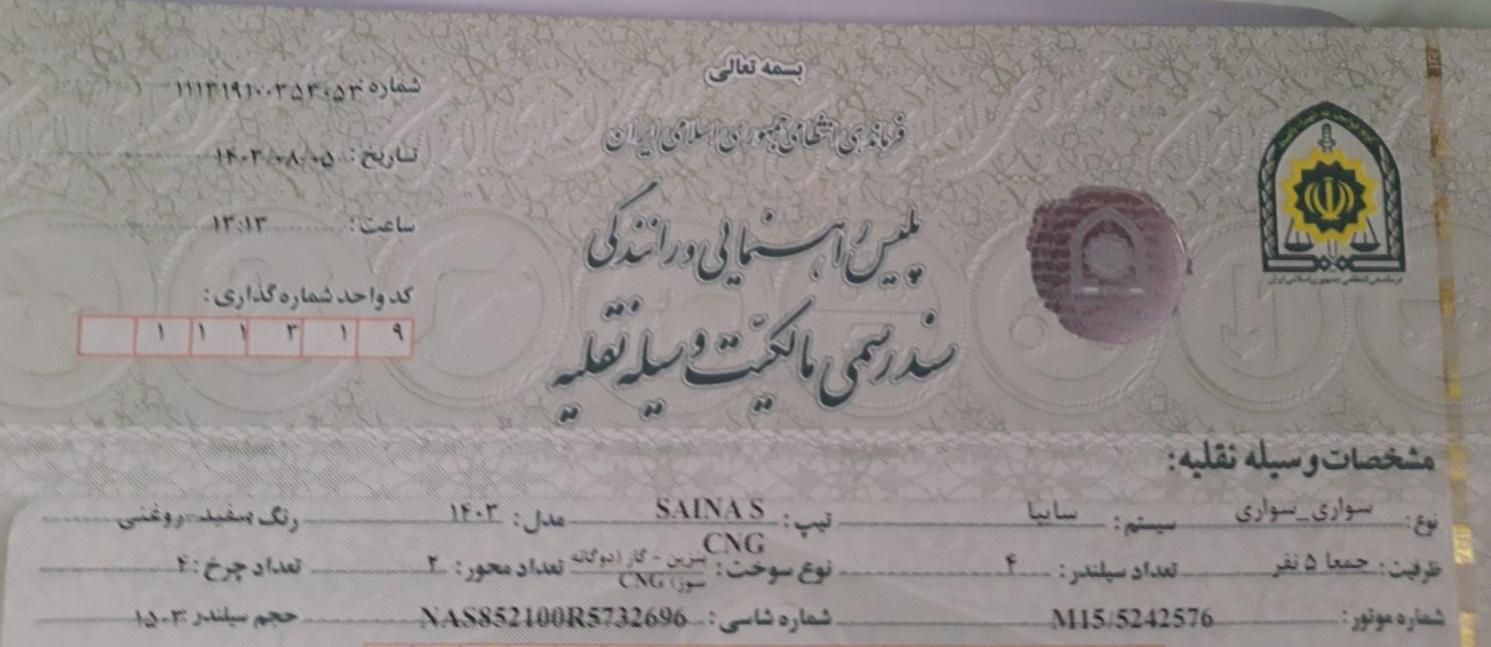 بسمه تعالی
فرماندهی انتظامی جمهوری اسلامی ایران
پلیس راهنمایی و رانندگی
سند رسمی مالکیت وسیله نقلیه
شماره:
تاریخ: ۱۴۰۳/۰۸/۰۵
ساعت: ۱۳:۱۳
کد واحد شماره گذاری:
۱ ۱ ۱ ۳ ۱ ۹
مشخصات وسیله نقلیه:
نوع: سواری_سواری سیستم: سایپا تیپ: SAINA S CNG مدل: ۱۴۰۳ رنگ سفید-روغنی
ظرفیت: جمعا ۵ نفر تعداد سیلندر: ۴ نوع سوخت: بنزین - گاز (دوگانه سوز) CNG تعداد محور: ۲ تعداد چرخ: ۴
شماره موتور: M15/5242576 شماره شاسی: NAS852100R5732696 حجم سیلندر: ۱۵۰۳